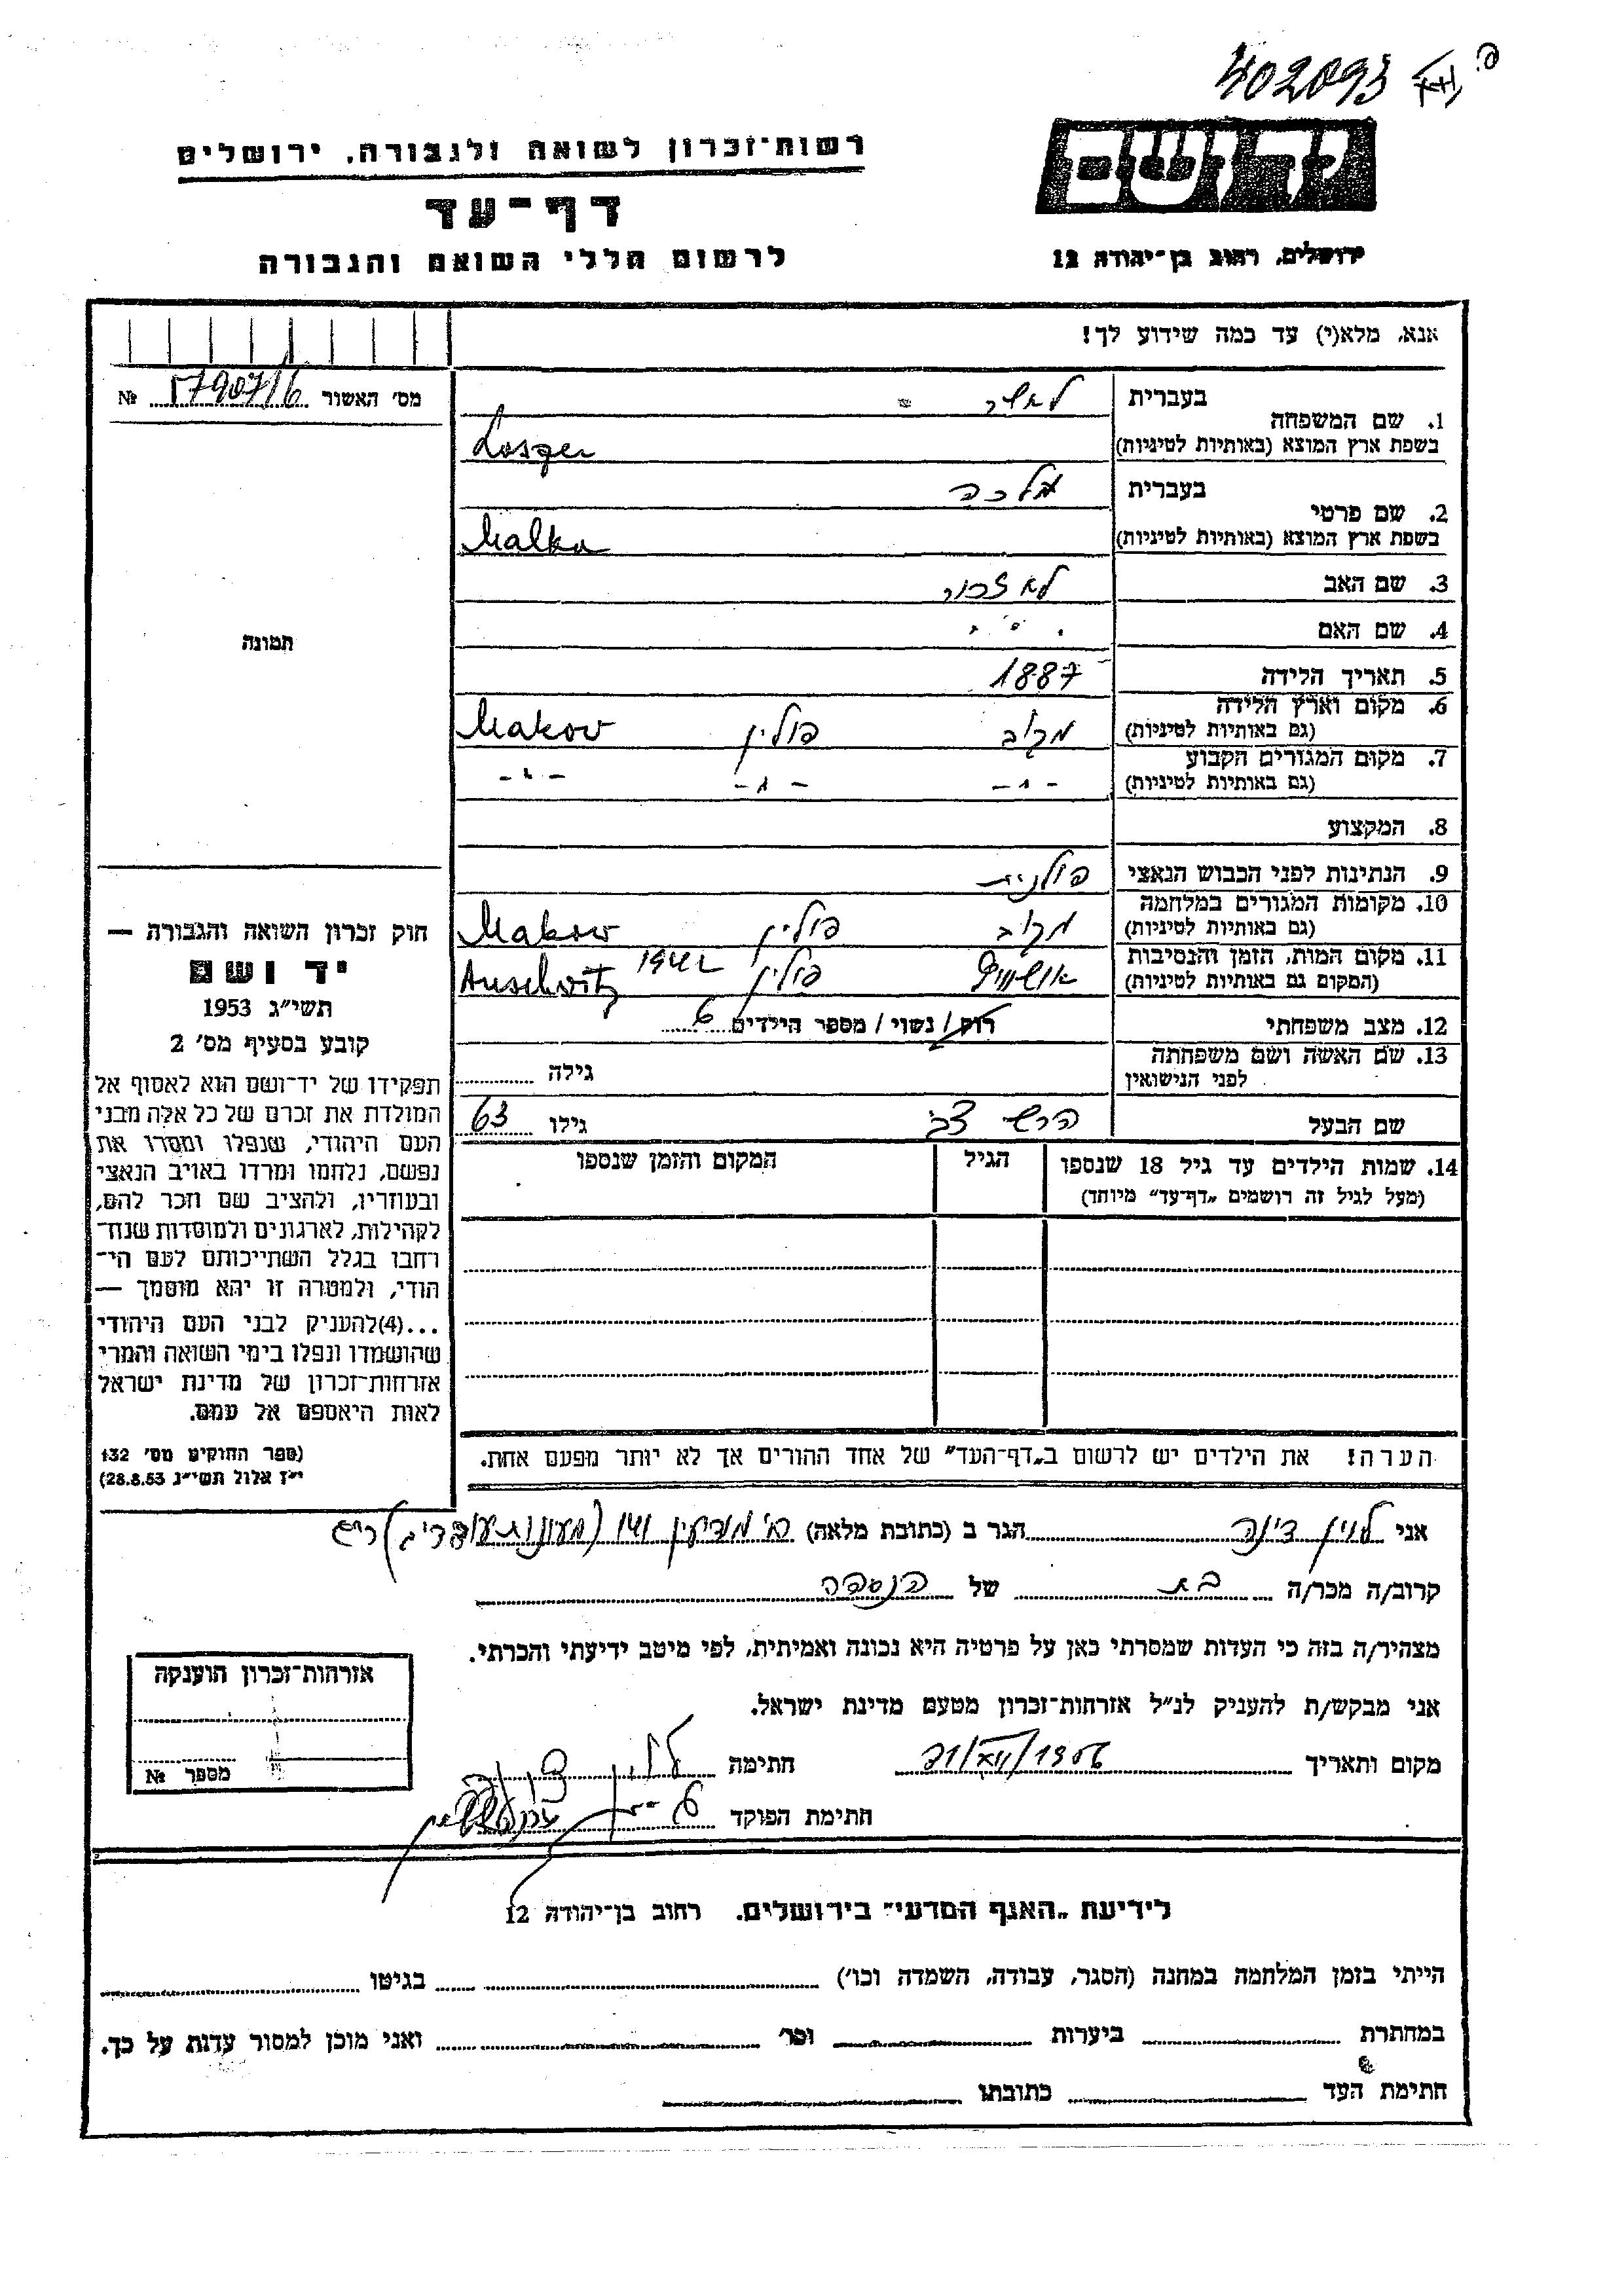 402093
יד ושם
ירושלים, רחוב בן־יהודה 12
רשות־זכרון לשואה ולגבורה, ירושלים
דף־עד
לרשום חללי השואה והגבורה
אנא, מלא(י) עד כמה שידוע לך!
מס׳ האשור № 1790716
תמונה
1. שם המשפחה
בעברית לאשר
בשפת ארץ המוצא (באותיות לטיניות) Losger
2. שם פרטי
בעברית מלכה
בשפת ארץ המוצא (באותיות לטיניות) Malka
3. שם האב לא זכור
4. שם האם
5. תאריך הלידה 1887
6. מקום וארץ הלידה
(גם באותיות לטיניות) מקוב פולין Makov
7. מקום המגורים הקבוע
(גם באותיות לטיניות) -"- -"- -"-
8. המקצוע
9. הנתינות לפני הכבוש הנאצי פולנית
10. מקומות המגורים במלחמה
(גם באותיות לטיניות) מקוב פולין Makow
11. מקום המות, הזמן והנסיבות
(המקום גם באותיות לטיניות) אושוויץ פולין 1942 Auschwitz
12. מצב משפחתי רווק / נשוי / מספר הילדים 6
13. שם האשה ושם משפחתה
לפני הנישואין גילה
שם הבעל הרש צבי גילו 63
14. שמות הילדים עד גיל 18 שנספו
(מעל לגיל זה רושמים „דף־עד״ מיוחד)
הגיל
המקום והזמן שנספו
הערה! את הילדים יש לרשום ב„דף־העד״ של אחד ההורים אך לא יותר מפעם אחת.
חוק זכרון השואה והגבורה —
יד ושם
תשי״ג 1953
קובע בסעיף מס׳ 2
תפקידו של יד־ושם הוא לאסוף אל
המולדת את זכרם של כל אלה מבני
העם היהודי, שנפלו ומסרו את
נפשם, נלחמו ומרדו באויב הנאצי
ובעוזריו, ולהציב שם וזכר להם,
לקהילות, לארגונים ולמוסדות שנח־
רבו בגלל השתייכותם לעם הי־
הודי, ולמטרה זו יהא מוסמך —
...(4)להעניק לבני העם היהודי
שהושמדו ונפלו בימי השואה והמרי
אזרחות־זכרון של מדינת ישראל
לאות היאספם אל עמם.
(ספר החוקים מס׳ 132
י״ז אלול תשי״ג 28.8.53)
אני לוין דינה הגר ב (כתובת מלאה)
קרוב/ה מכר/ה בת של הנספה
מצהיר/ה בזה כי העדות שמסרתי כאן על פרטיה היא נכונה ואמיתית, לפי מיטב ידיעתי והכרתי.
אני מבקש/ת להעניק לנ״ל אזרחות־זכרון מטעם מדינת ישראל.
מקום ותאריך חתימה לוין דינה
חתימת הפוקד
אזרחות־זכרון הוענקה
מספר №
לידיעת „האגף המדעי״ בירושלים, רחוב בן־יהודה 12
הייתי בזמן המלחמה במחנה (הסגר, עבודה, השמדה וכו׳) בגיטו
במחתרת ביערות וכו׳ ואני מוכן למסור עדות על כך.
חתימת העד כתובתו